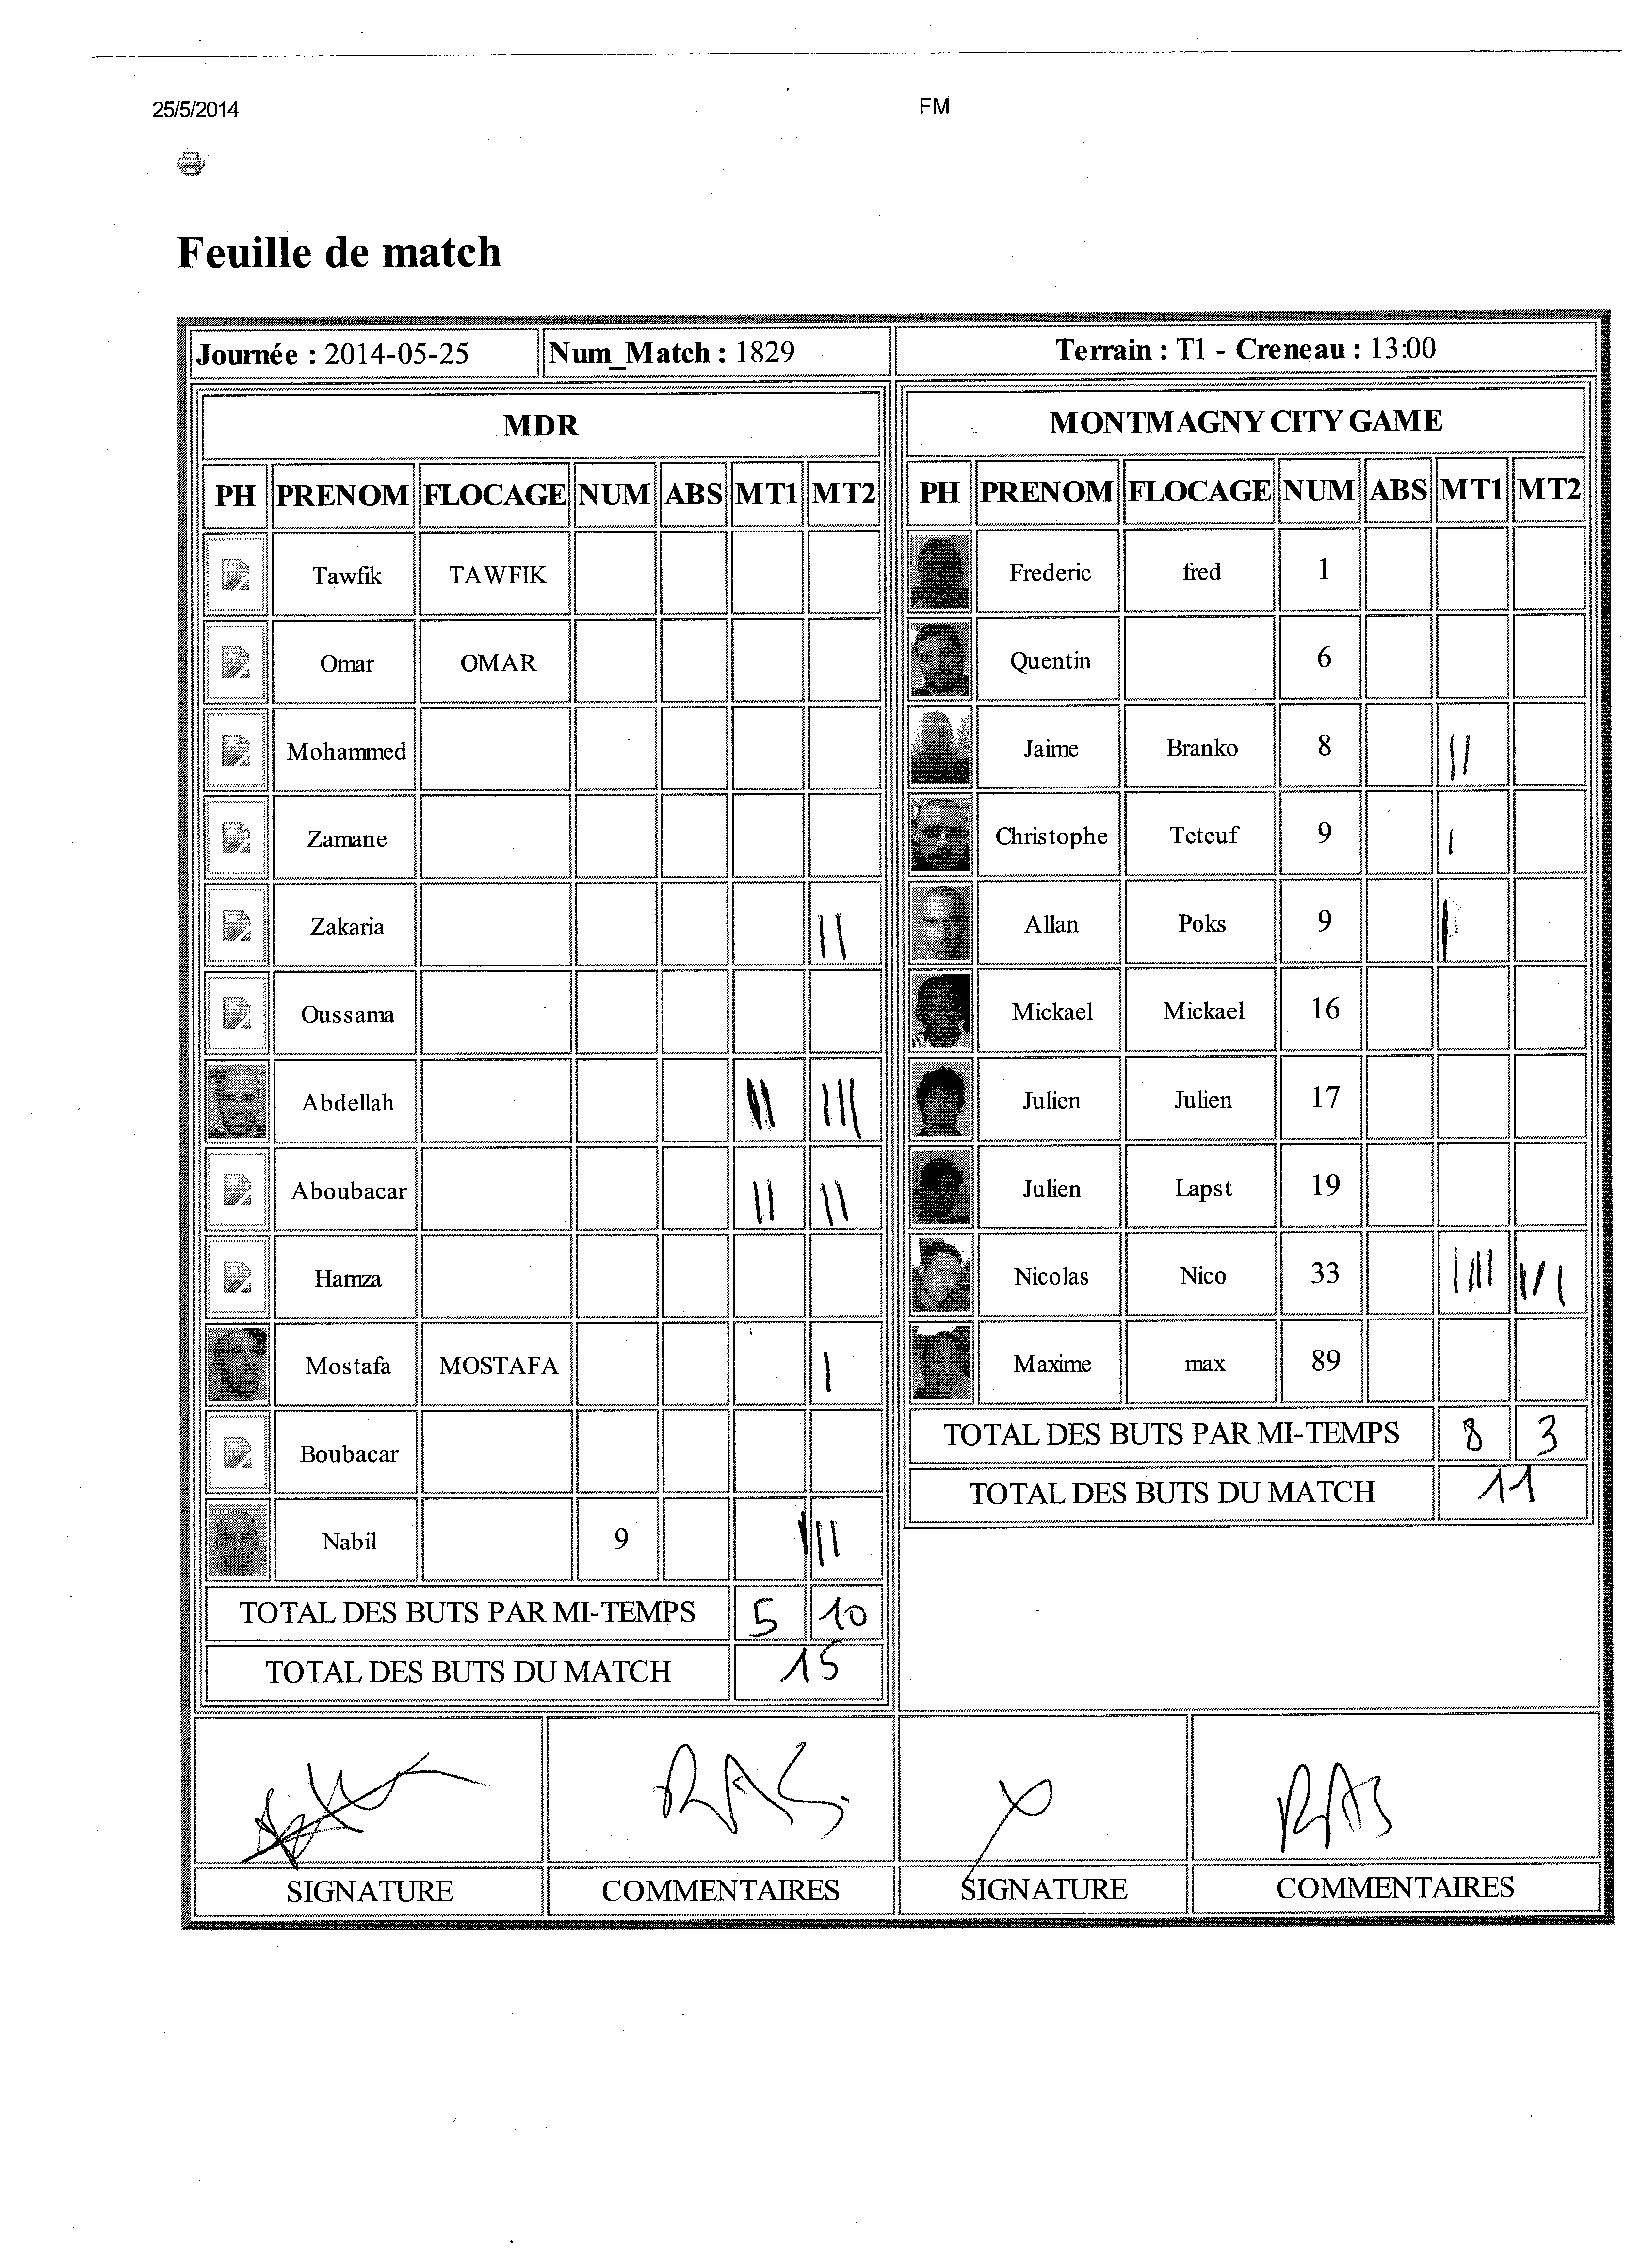 25/5/2014 FM
Feuille de match
Journée : 2014-05-25 Num_Match : 1829 Terrain : T1 - Creneau : 13:00
MDR
PH PRENOM FLOCAGE NUM ABS MT1 MT2
Tawfik TAWFIK
Omar OMAR
Mohammed
Zamane
Zakaria II
Oussama
Abdellah II III
Aboubacar II II
Hamza
Mostafa MOSTAFA I
Boubacar
Nabil 9 III
TOTAL DES BUTS PAR MI-TEMPS 5 10
TOTAL DES BUTS DU MATCH 15
MONTMAGNY CITY GAME
PH PRENOM FLOCAGE NUM ABS MT1 MT2
Frederic fred 1
Quentin 6
Jaime Branko 8 II
Christophe Teteuf 9 I
Allan Poks 9 I
Mickael Mickael 16
Julien Julien 17
Julien Lapst 19
Nicolas Nico 33 IIII III
Maxime max 89
TOTAL DES BUTS PAR MI-TEMPS 8 3
TOTAL DES BUTS DU MATCH 11
RAS. RAS
SIGNATURE COMMENTAIRES SIGNATURE COMMENTAIRES